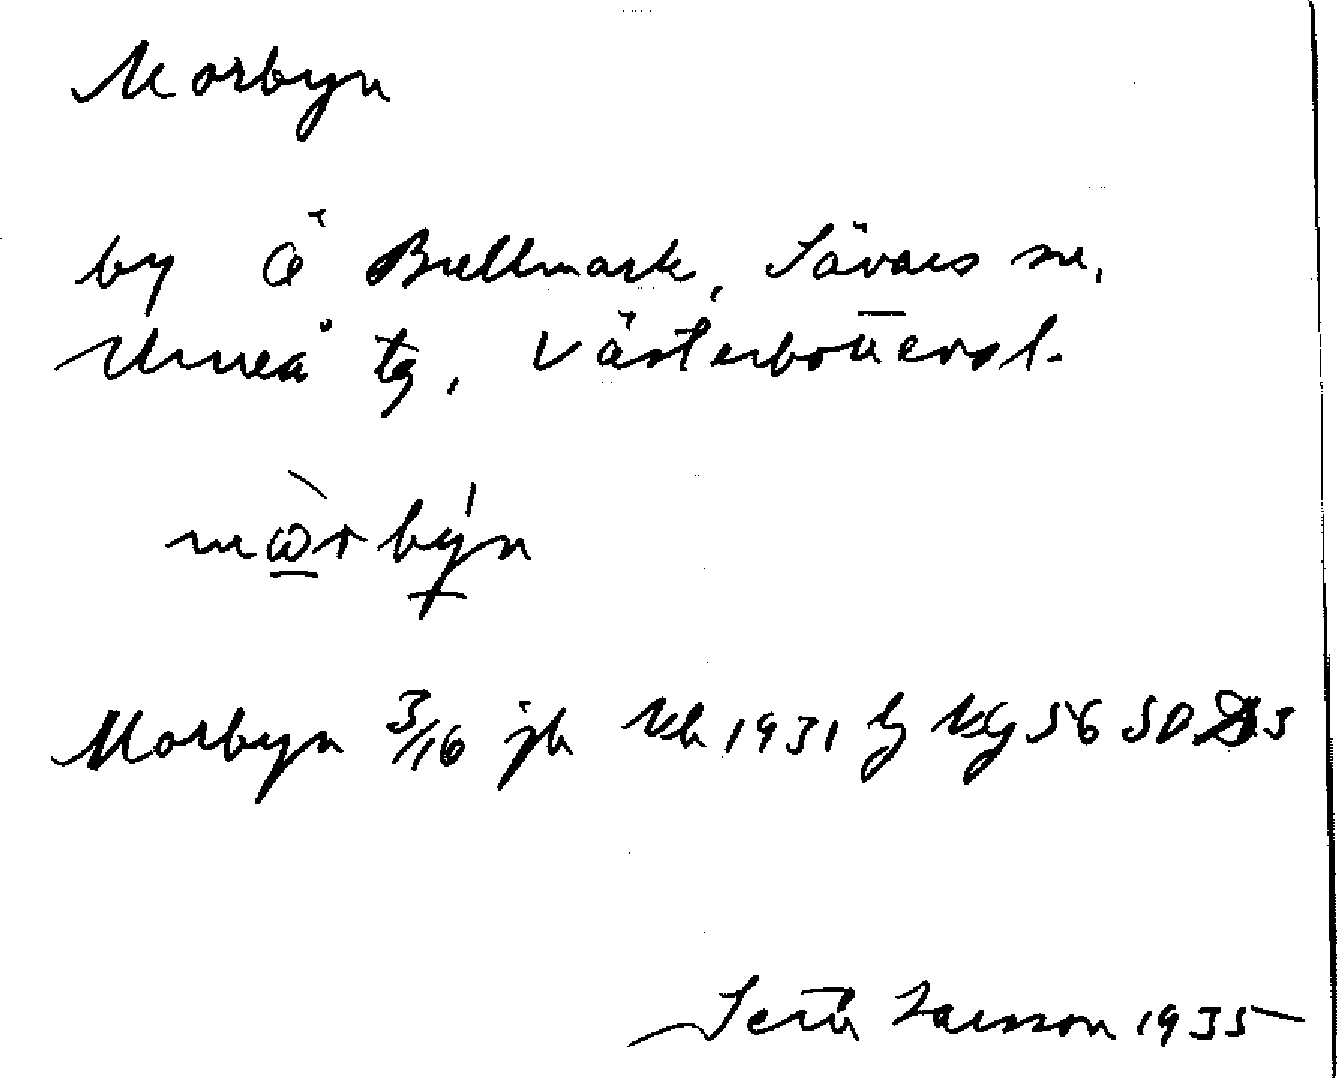 Morbyn
by Ö Bullmark, Sävars sn,
Umeå tg, Västerbottens l.
Morbyn 3/16 jb 1931 56 50
Seth Larsson 1935